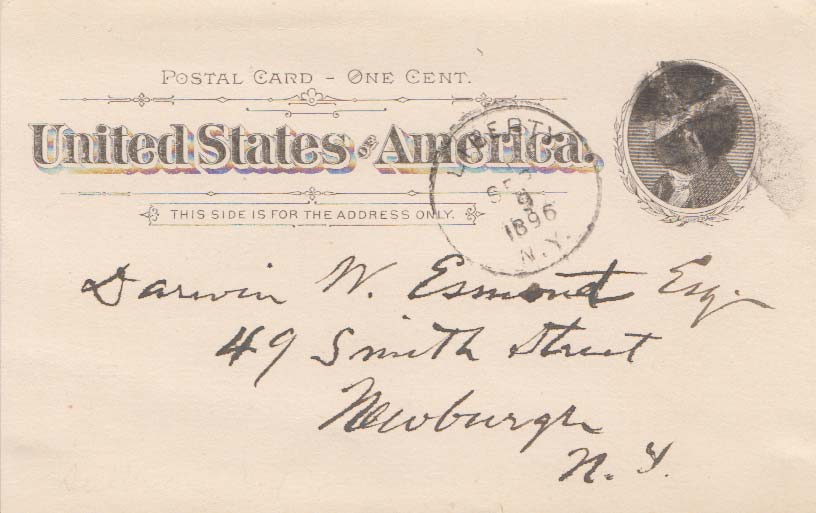 POSTAL CARD - ONE CENT.
United States of America.
THIS SIDE IS FOR THE ADDRESS ONLY.
LIBERTY
SEP
9
1896
N.Y.
Darwin W. Esmond Esq.
49 Smith Street
Newburgh
N.Y.